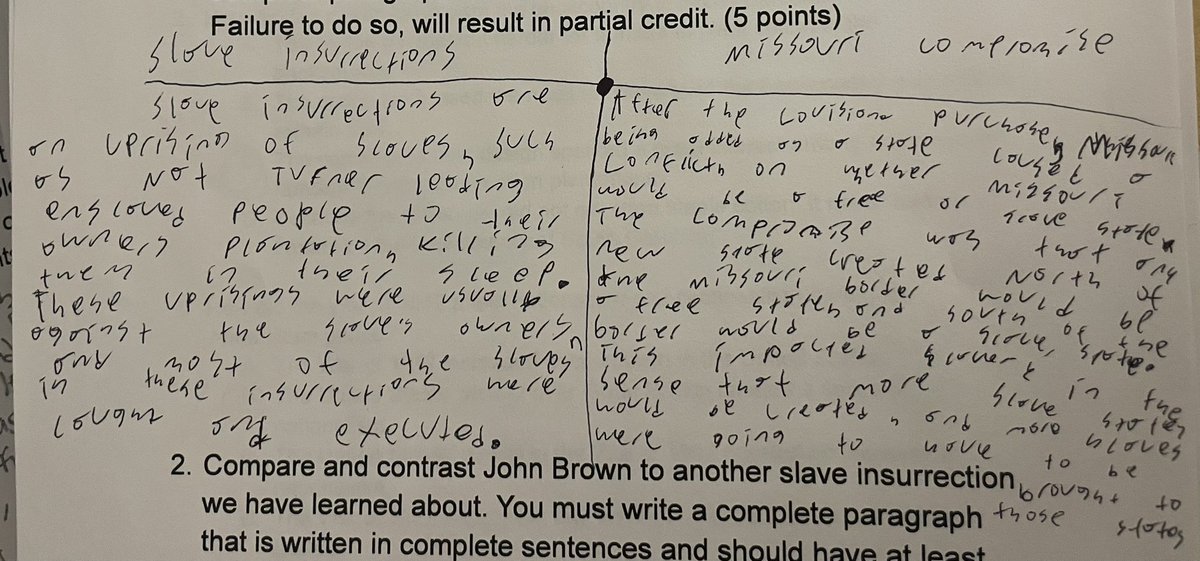 Failure to do so, will result in partial credit. (5 points)
Slave insurrections
Missouri compromise
Slave insurrections are
an uprising of slaves, such
as Nat Turner leading
enslaved people to their
owners plantation, killing
them in their sleep.
These uprisings were usually
against the slave's owners,
and most of the slaves
in these insurrections were
caught and executed.
After the Louisiana purchase, Missouri
being added as a state caused a
conflict, on wether Missouri
would be a free or slave state.
The compromise was that any
new state created North of
the Missouri border would be
a free state, and south of the
border would be a slave state.
This impacted slavery in the
sense that more slave states
would be created, and more slaves
were going to have to be
brought to
those states
2. Compare and contrast John Brown to another slave insurrection
we have learned about. You must write a complete paragraph
that is written in complete sentences and should have at least